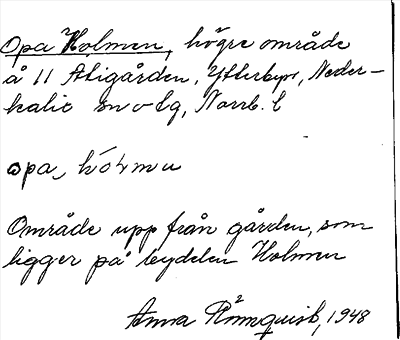 Opa Holmen, högre område
å 11 Stigården, Ytterbyn, Neder-
kalix sn o tg, Norrb. l
opa, hólmu
Område upp från gården, som
ligger på bydelen Holmen
Anna Rönnquist, 1948